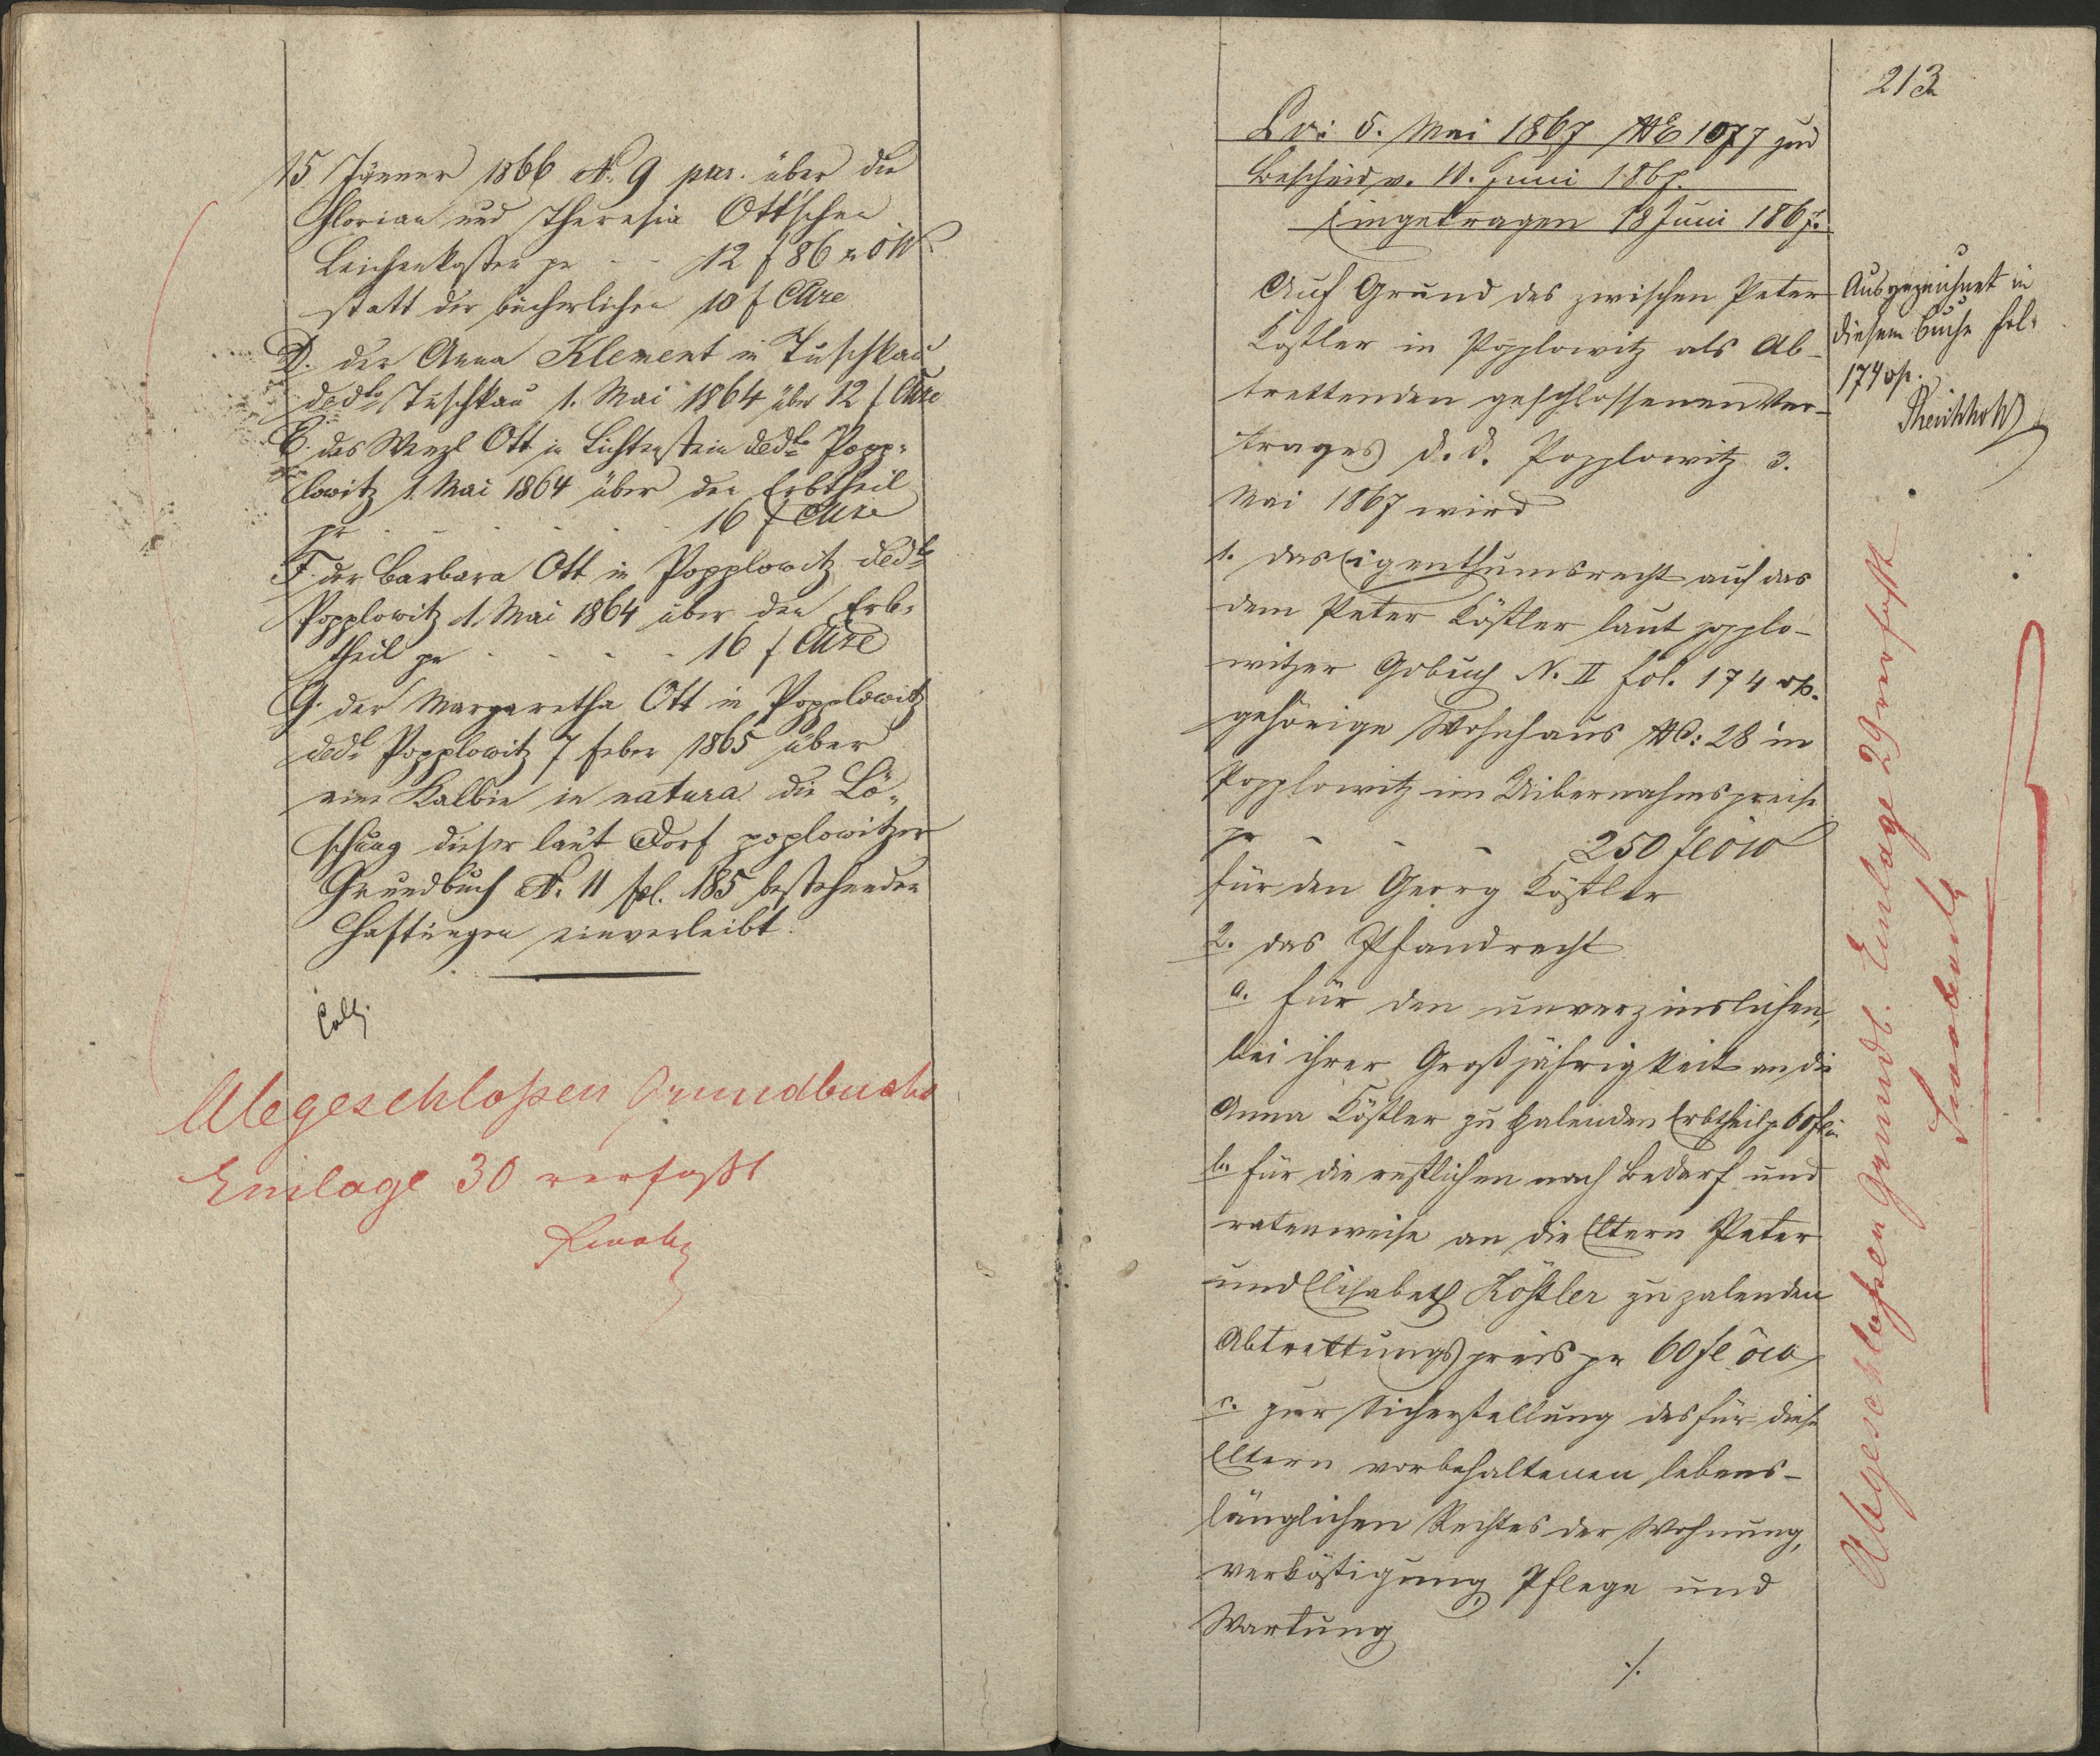 15 Jänner 1866 N. 9 pur. über die
Florian und Theresia Ott'schen
Leichenkosten pr - - 12 f 86 x ÖW
statt der bücherlichen 10 f CMze
D. der Anna Klement in Tuschkau
ddto Tuschkau 1. Mai 1864 über 12 f CMze
E. des Wenzl Ott in Lichtenstein ddto Popp=
lowitz 1 Mai 1864 über den Erbtheil
pr - - - - - 16 f CMze
F. der Barbara Ott in Popplowitz ddto
Popplowitz 1. Mai 1864 über den Erb=
theil pr - - - - 16 f CMze
G. der Margaretha Ott in Popplowitz
ddto Popplowitz 7 feber 1865 über
eine Kalbin in natura die Lö=
schung dieser laut Dorf poplowitzer
Grundbuch N. 11 fol. 185 bestehenden
Haftungen einverleibt.
Coll.
Abgeschloßen Grundbuchs
Einlage 30 verfaßt
213
5. Mai 1867 NE 1077 und
Bescheid v. 10. Juni 1867.
Eingetragen 18 Juni 1867.
Auf Grund des zwischen Peter
Köstler in Popplowitz als Ab-
trettenden geschlossenen Ver-
trages d. d. Popplowitz 3.
Mai 1867 wird
1. das Eigenthumsrecht auf das
dem Peter Köstler laut popplo-
witzer Gdbuch N. II fol. 174 vp.
gehörige Wohnhaus NC: 28 in
Popplowitz im Uibernahmspreise
pr - - - 250 fl öw
für den Georg Köstler
2. das Pfandrecht
a. für den unverzinslichen,
bei ihrer Großjährigkeit an die
Anna Köstler zu zalenden Erbtheil pr 60 fl
b. für die restlichen nach Bedarf und
ratenweise an die Eltern Peter
und Elisabeth Köstler zu zalenden
Abtrettungspreis pr 60 fl öw
c. zur Sicherstellung des für diese
Eltern vorbehaltenen lebens-
länglichen Rechtes der Wohnung,
Verköstigung, Pflege und
Wartung
./.
Ausgezeichnet in
diesem Buche fol:
174 vp.
Abgeschloßen Grundb. Einlage 29 verfaßt